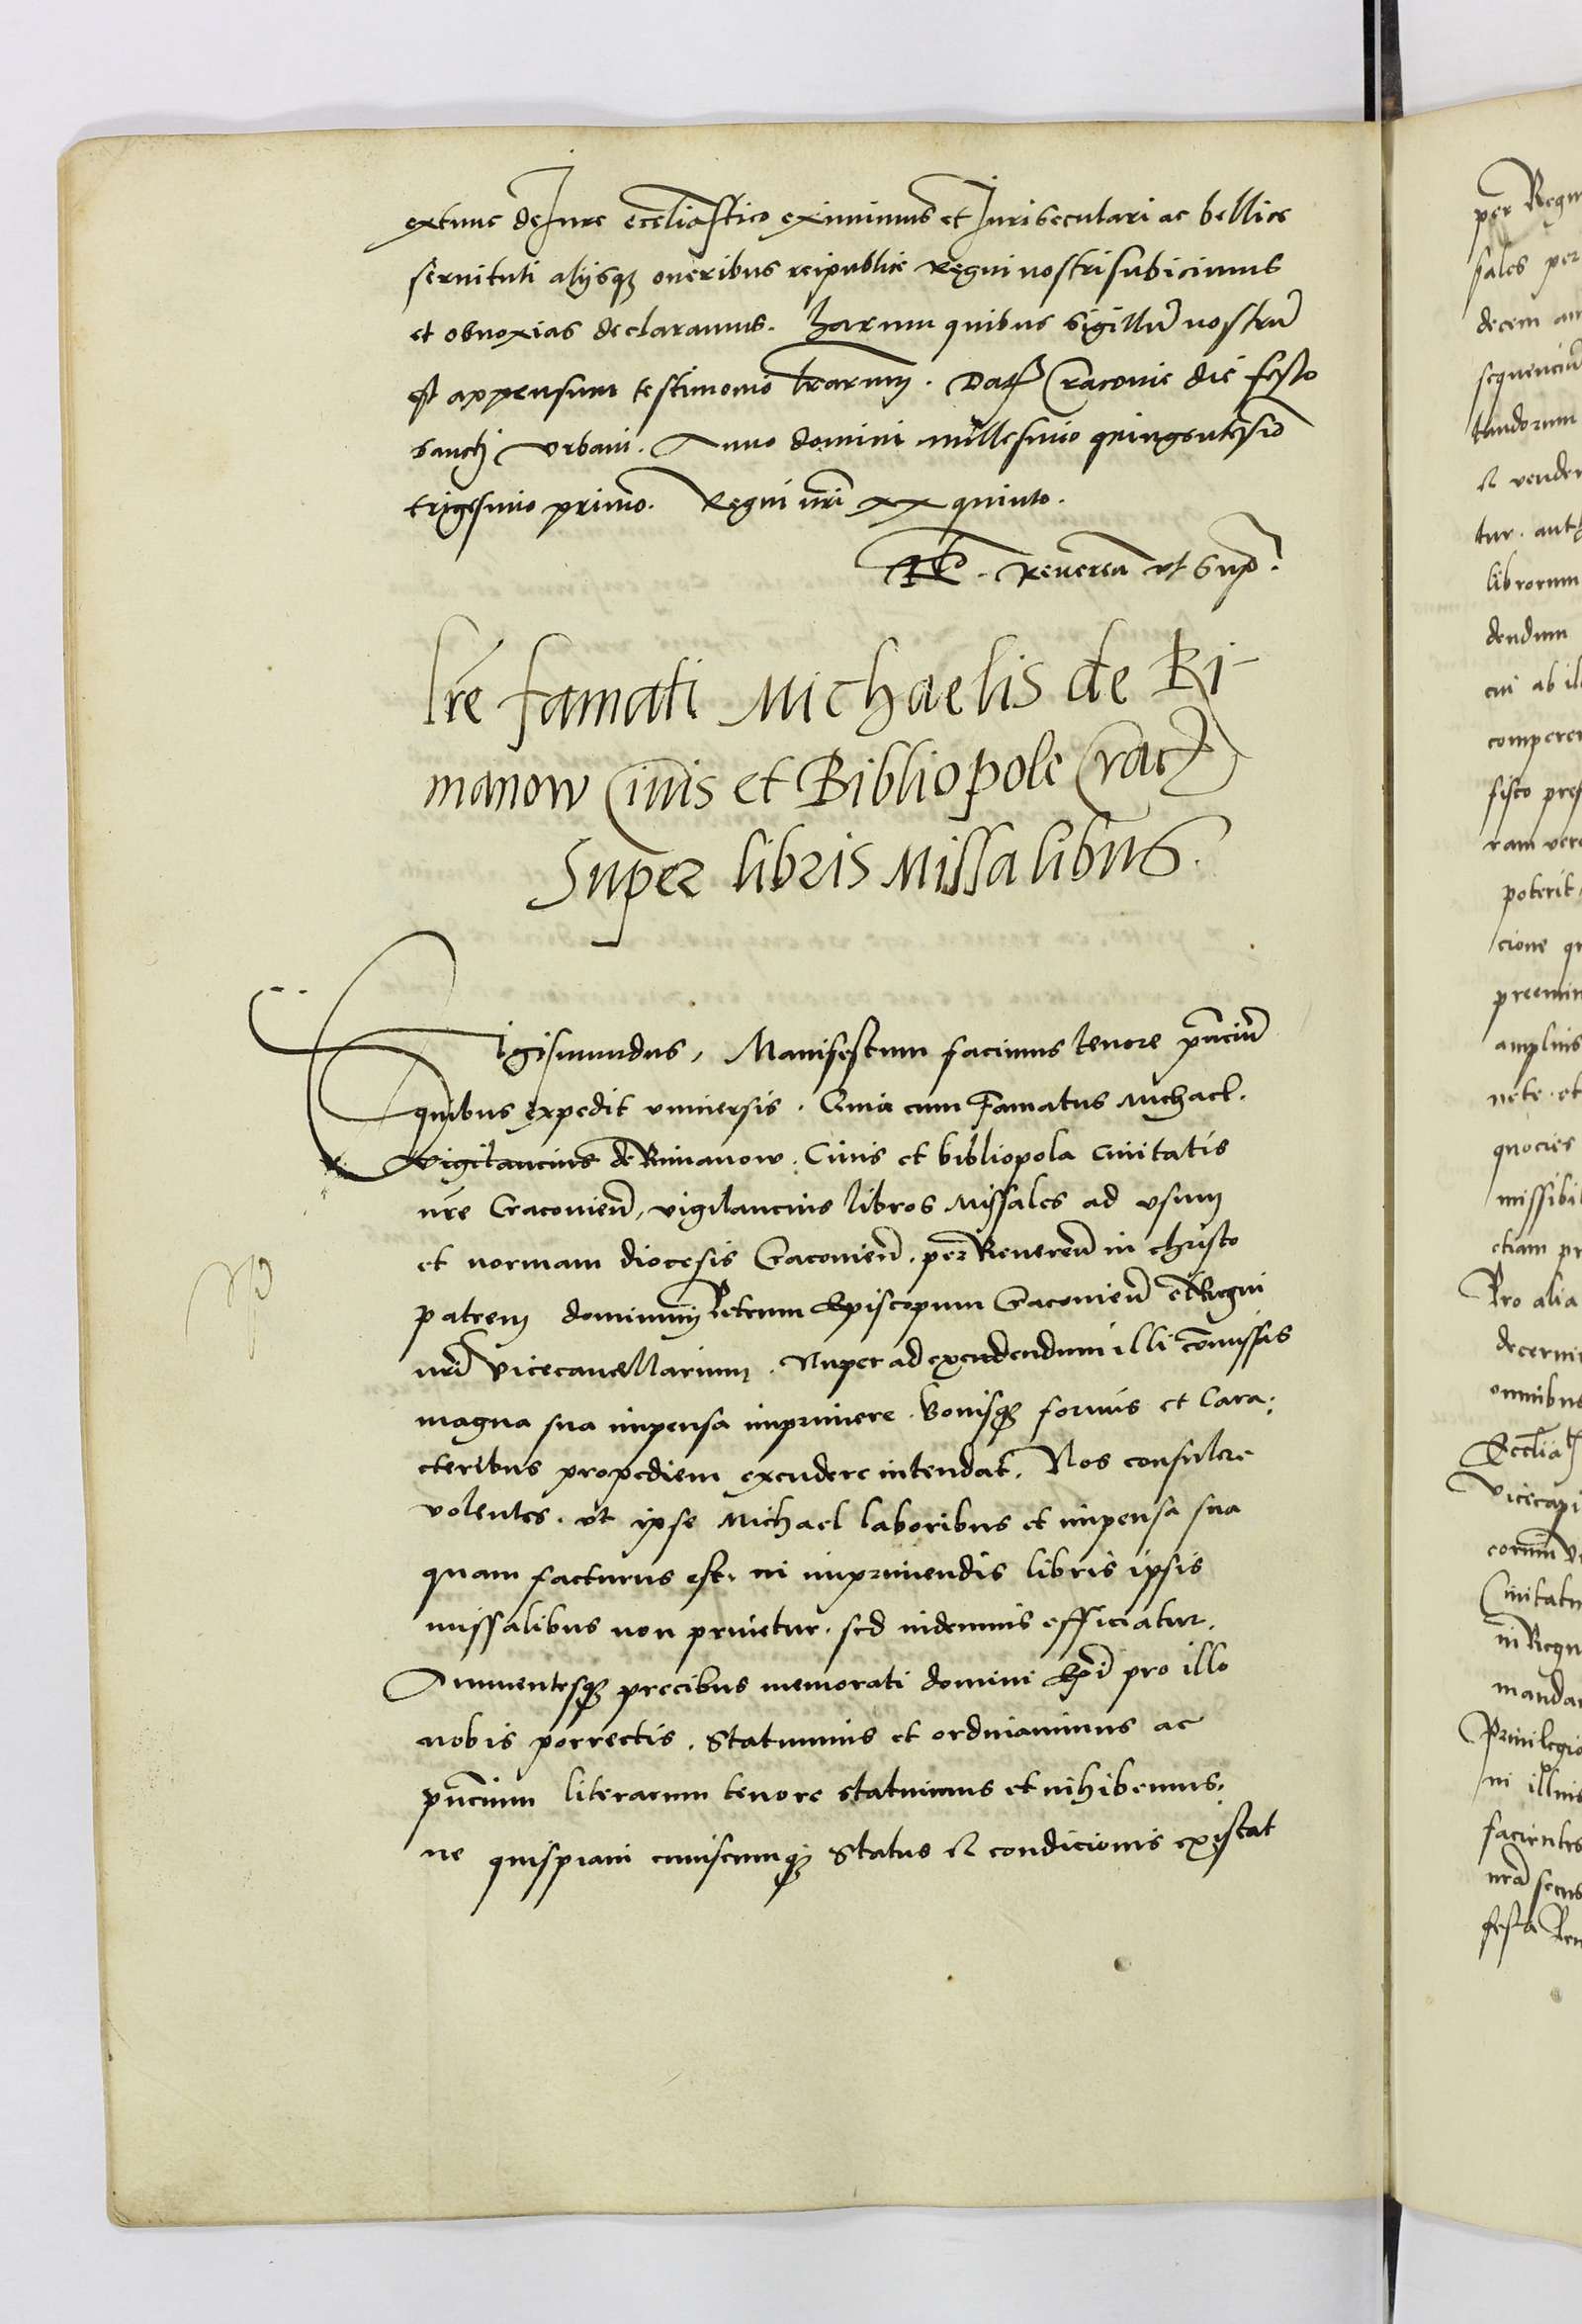 extunc de Iure ecclīastico eximimus et Iuri seculari ac bellice
seruituti alijsq; oneribus reipublice Regni nostri subicimus
et obnoxias declaramus. Harum quibus sigillū nostrū
est appensum testimonio lrarum. Dat Cracovie die festo
sancti Vrbani. Anno domini millesimo quingentesiō
trigesimo primo. Regni nrī xx quinto.
Reueren̄ vt sup.
lrē famati Michaelis de Ri-
manow Ciuis et Bibliopole Crac
Super libris Missalibus.
Sigismundus, Manifestum facimus tenore pn̄ciū
quibus expedit vniuersis. Quia cum Famatus Michael.
vigilancius de Rimanow. Ciuis et bibliopola Ciuitatis
nrē Cracovien̄, vigilancius libros Missales ad vsum
et normam diocesis Cracovien̄. per Reueren̄ in christo
patrem dominum Petrum Episcopum Cracovien̄ et Regni
nrī Vicecancellarium. Nuper ad excudendum illi cōmissas
magna sua impensa imprimere. bonisq; formis et Cara:
cteribus propediem excudere intendat. Nos consulere
volentes. vt ipse Michael laboribus et impensa sua
quam facturus est. in imprimendis libris ipsis
missalibus non priuetur. sed indemnis efficiatur.
Annuentesq; precibus memorati domini Epī pro illo
nobis porrectis. Statuimus et ordinamus ac
pn̄cium literarum tenore statuimus et inhibemus.
ne quispiam cuiuscumq; Status et condicionis existat
per Regn
sales per
decem an
sequenciū
tandorum
et vender
tur. aut
librorum
dendum
cui ab il
comperer
fisco pres
ram vere
poterit
cione qu
preemin
amplius
nete. et
quocies
missibil
etiam pr
Pro alia
decernim
omnibus
Ecclīa
Vicecapi
corum
Ciuitatu
in Regn
mandam
Priuilegio
in illius
facientes
nrā secus
festa Pen